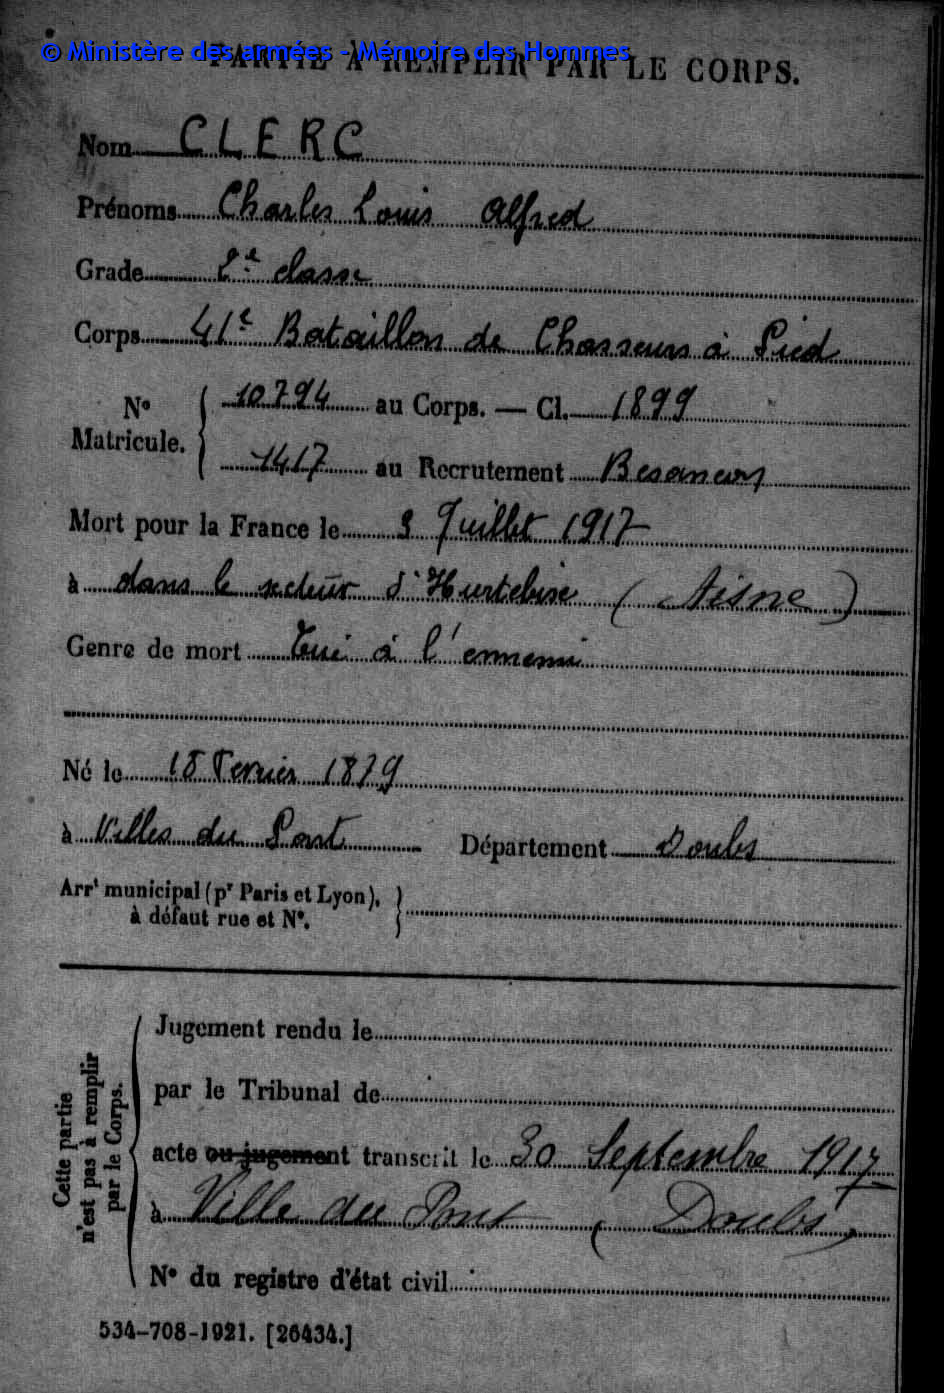 © Ministère des armées - Mémoire des Hommes
PARTIE À REMPLIR PAR LE CORPS.
Nom CLERC
Prénoms Charles Louis Alfred
Grade 2e classe
Corps 41e Bataillon de Chasseurs à Pied
No Matricule. { 10794 au Corps. — Cl. 1899
1417 au Recrutement Besançon
Mort pour la France le 3 Juillet 1917
à dans le secteur d'Hurtebise (Aisne)
Genre de mort Tué à l'ennemi
Né le 18 Fevrier 1879
à Villes du Pont Département Doubs
Arrt municipal (pr Paris et Lyon),
à défaut rue et No.
Cette partie
n'est pas à remplir
par le Corps.
Jugement rendu le
par le Tribunal de
acte ou jugement transcrit le 30 Septembre 1917
à Ville du Pont (Doubs)
No du registre d'état civil
534-708-1921. [26434.]